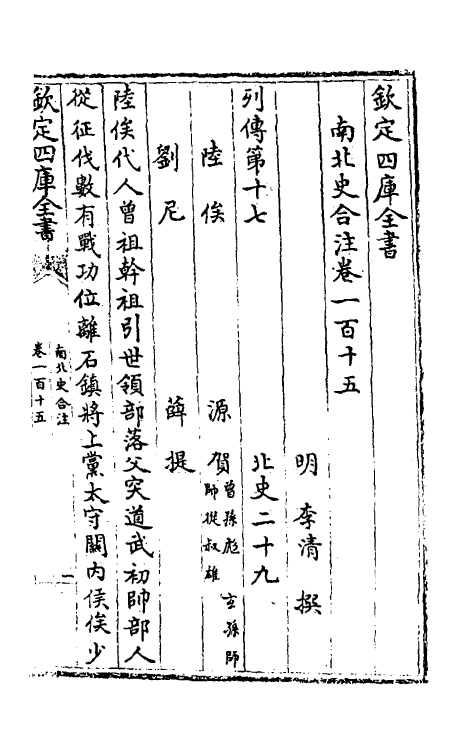 欽定四庫全書
南北史合注卷一百十五
明 李清 撰
列傳第十七 北史二十九
陸俟 源賀 曾孫彪 玄孫師 師從叔雄
劉尼 薛提
陸俟代人曾祖幹祖引世領部落父突道武初帥部人
從征伐數有戰功位離石鎮將上黨太守關內侯俟少
欽定四庫全書
南北史合注
卷一百十五
一